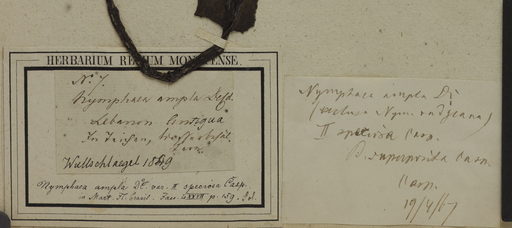 HERBARIUM REGIUM MONACENSE.
No. 7.
Nymphaea ampla Desf.
Lebanon Antigua
In Teichen,
Wullschlaegel 1849
Nymphaea ampla DC. var. II speciosa Casp.
in Mart. Fl. brasil. Fasc. LXXVII p. 159.
Nymphaea ampla DC
(exclus. Nym. rudgeana)
II speciosa Casp.
B. superposita Casp.
Casp.
19/4/67